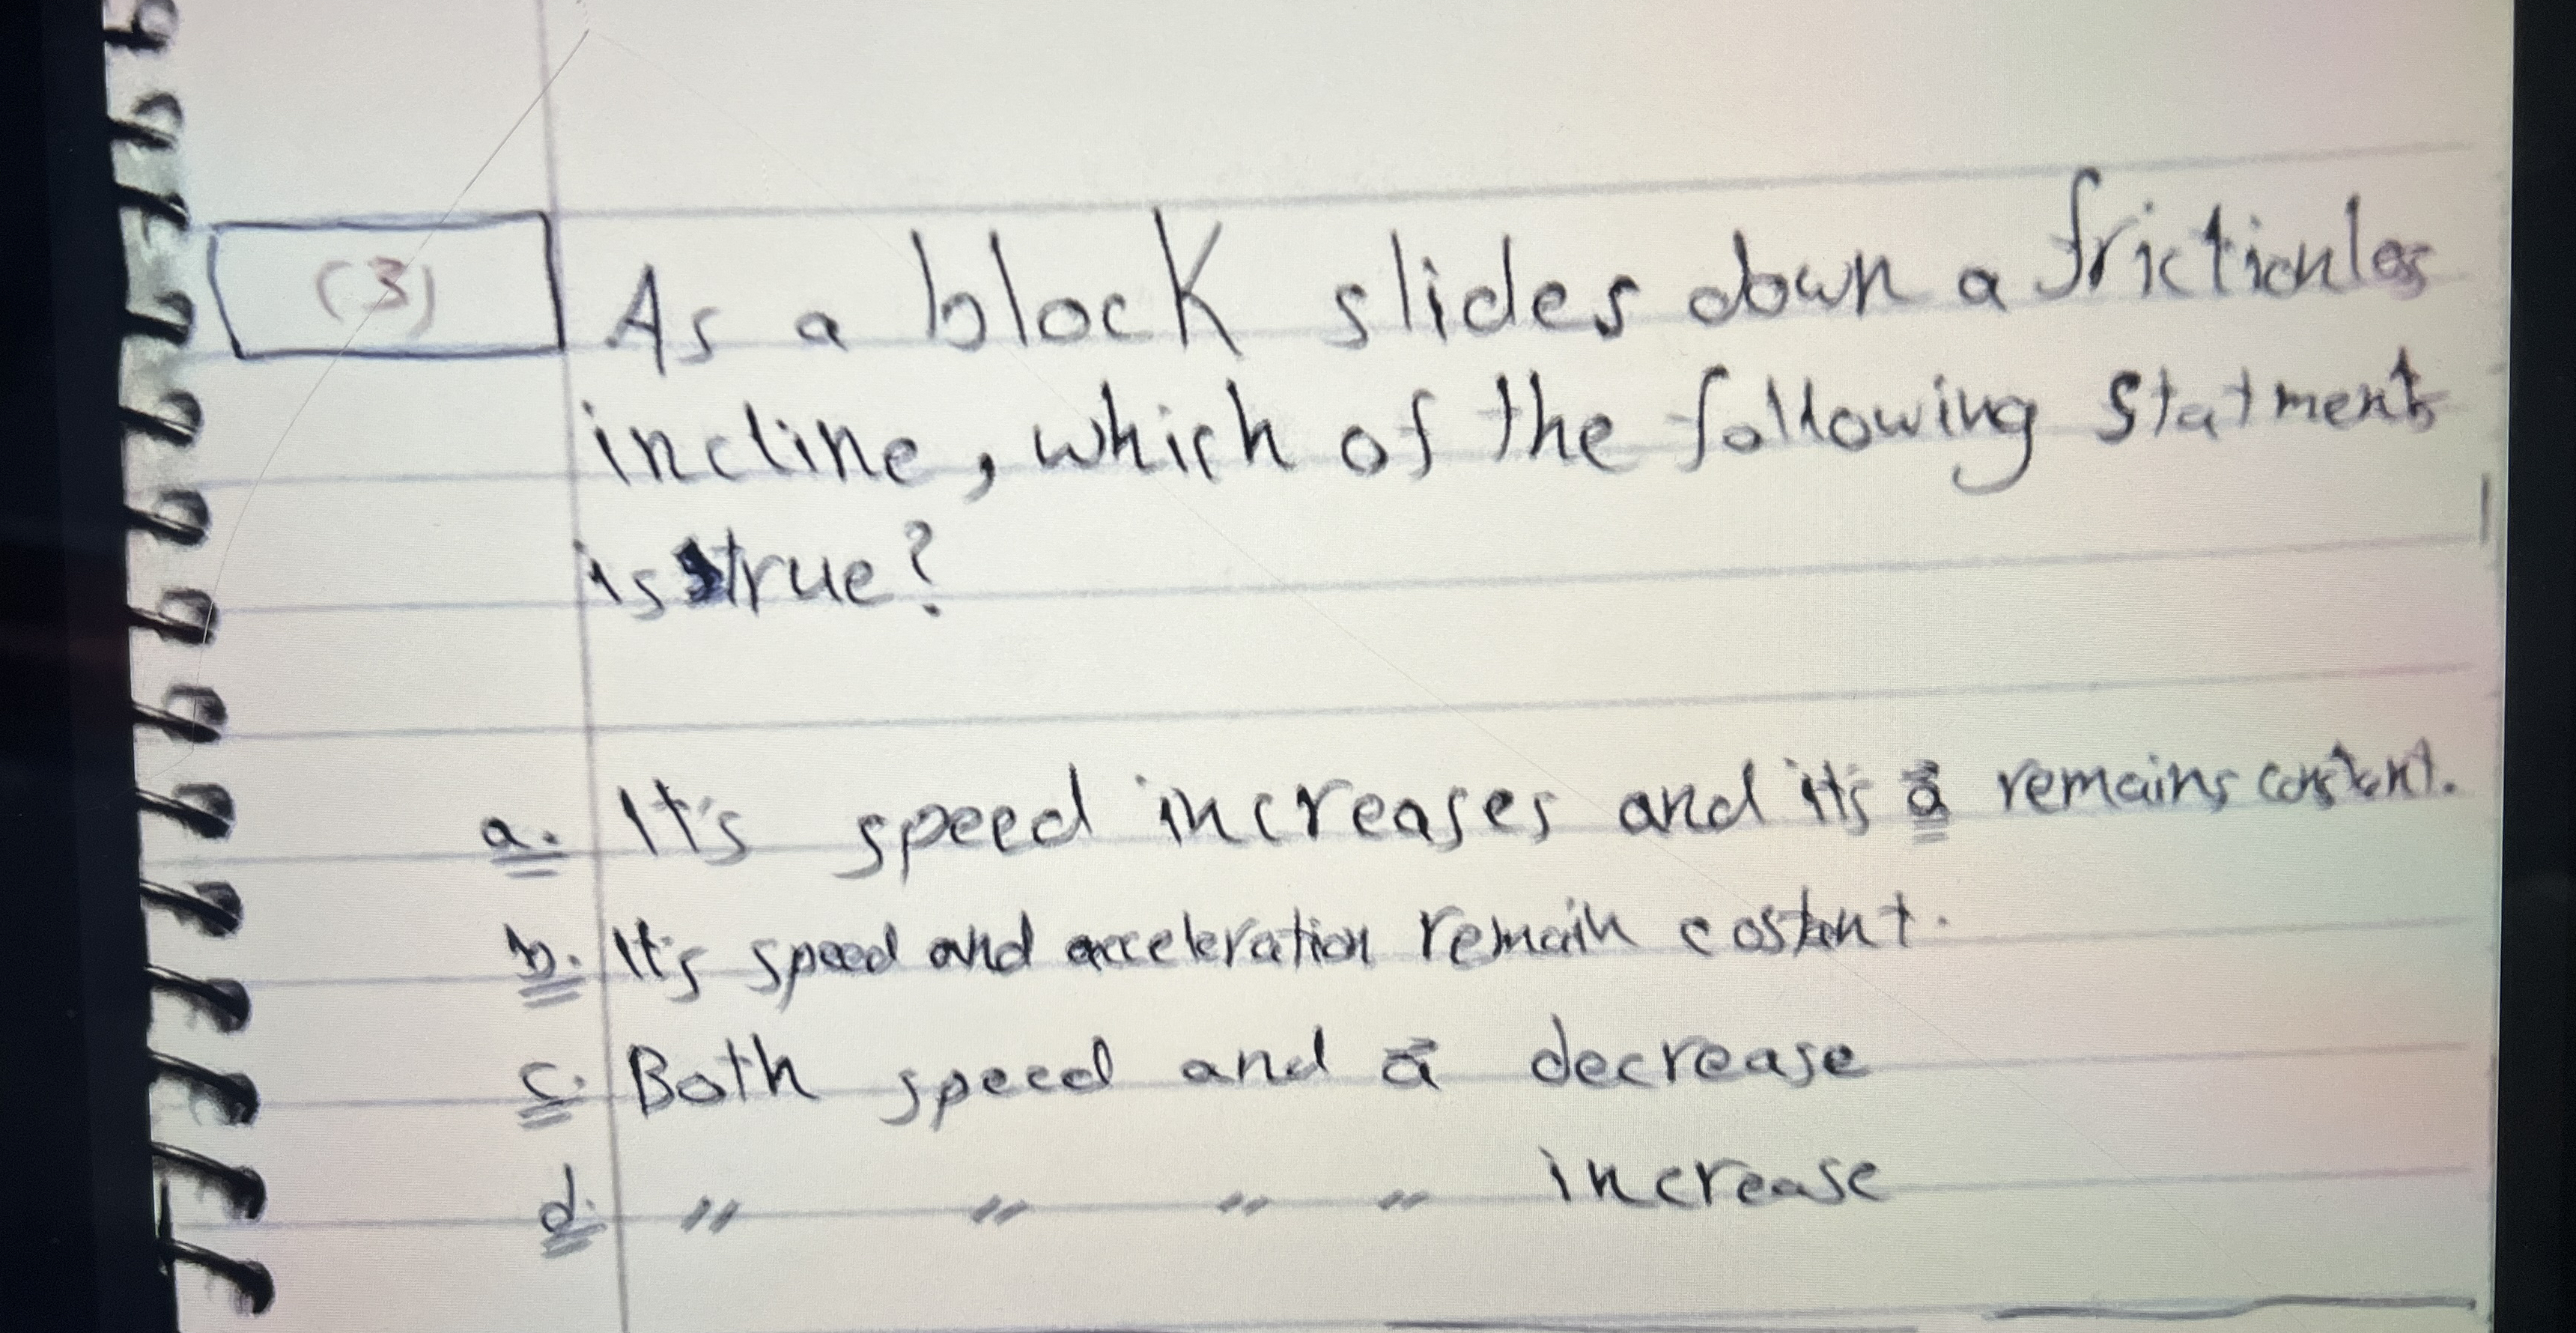 (3)
As a block slides down a frictionles
incline, which of the following statments
is true?
a. It's speed increases and it's a⃗ remains constant.
b. It's speed and acceleration remain costant.
c. Both speed and a⃗ decrease
d. " " " " increase